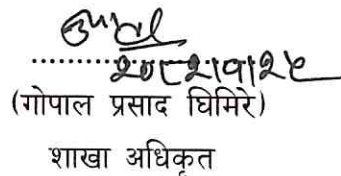 २०८२।१।२५
(गोपाल प्रसाद घिमिरे)
शाखा अधिकृत